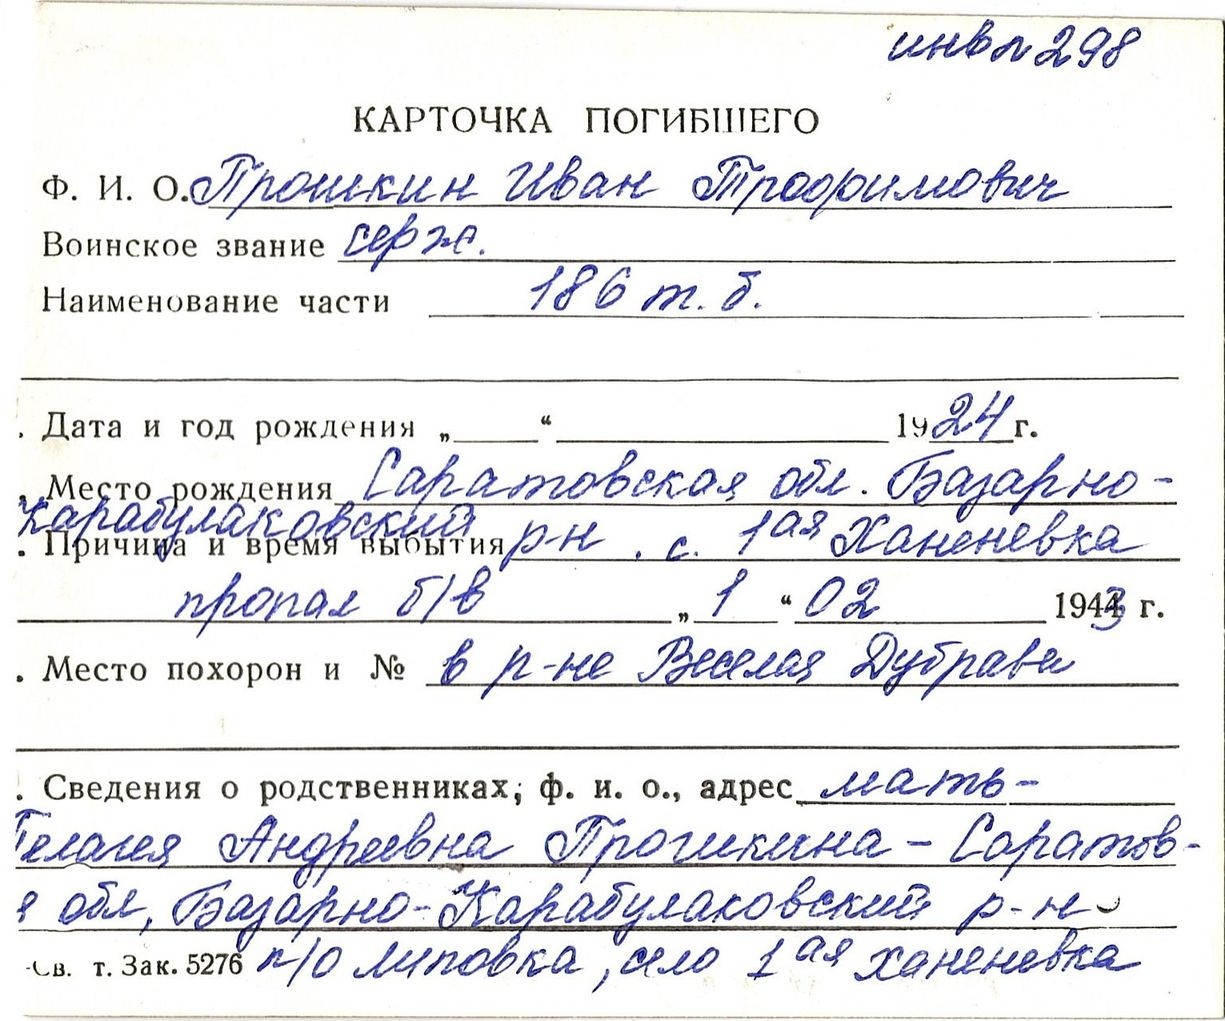 инв № 298
КАРТОЧКА ПОГИБШЕГО
Ф. И. О. Прошкин Иван Трофимович
Воинское звание серж.
Наименование части 186 т. б.
. Дата и год рождения „ “ 1924 г.
. Место рождения Саратовская обл. Базарно-
Карабулаковский р-н. с. 1ая Ханеневка
. Причина и время выбытия
пропал б/в „ 1 “ 02 1943 г.
. Место похорон и № в р-не Веселая Дубрава
. Сведения о родственниках, ф. и. о., адрес мать-
Пелагея Андреевна Прошкина - Саратов-
я обл, Базарно-Карабулаковский р-н
Св. т. Зак. 5276 п/о Липовка, село 1ая Ханеневка